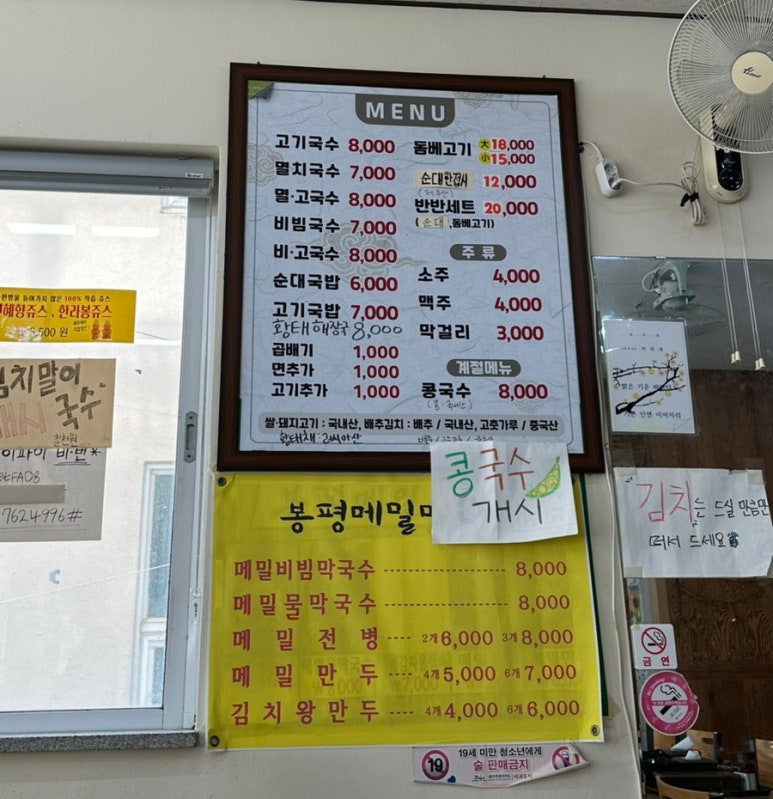 MENU
고기국수 8,000
멸치국수 7,000
멸·고국수 8,000
비빔국수 7,000
비·고국수 8,000
순대국밥 6,000
고기국밥 7,000
황태해장국 8,000
곱배기 1,000
면추가 1,000
고기추가 1,000
돔베고기 大 18,000
小 15,000
순대한접시 12,000
반반세트 20,000
(순대,돔베고기)
주류
소주 4,000
맥주 4,000
막걸리 3,000
계절메뉴
콩국수 8,000
쌀·돼지고기 : 국내산, 배추김치 : 배추 / 국내산, 고춧가루 / 중국산
황태채 : 러시아산
콩국수
개시
봉평메밀
메밀비빔막국수 8,000
메밀물막국수 8,000
메밀전병 2개 6,000 3개 8,000
메밀만두 4개 5,000 6개 7,000
김치왕만두 4개 4,000 6개 6,000
19
19세 미만 청소년에게
술 판매금지
100% 착즙 쥬스
한라봉쥬스
김치말이
국수
개시
비번*
7624996#
김치는 드실 만큼만
떠서 드세요
금연